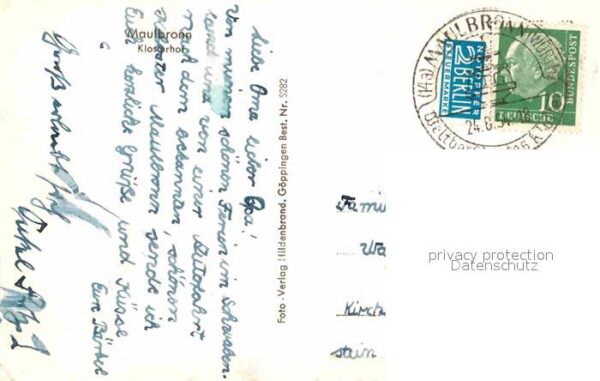 Maulbronn
Klosterhof
Liebe Oma, lieber Opa!
Von meinen schönen Ferien im Schwaben-
land und von einer Autofahrt
nach dem bekannten, schönen
Kloster Maulbronn sende ich
Euch herzliche Grüße und Küsse
Eure Bärbel
Foto-Verlag Hildenbrand, Göppingen Best. Nr. 5282
(14a) MAULBRONN (WÜRTT)
24.8.54
NOTOPFER
2 BERLIN
STEUERMARKE
10
DEUTSCHE
BUNDESPOST
Famil
Wa
Kirch
stein
privacy protection
Datenschutz